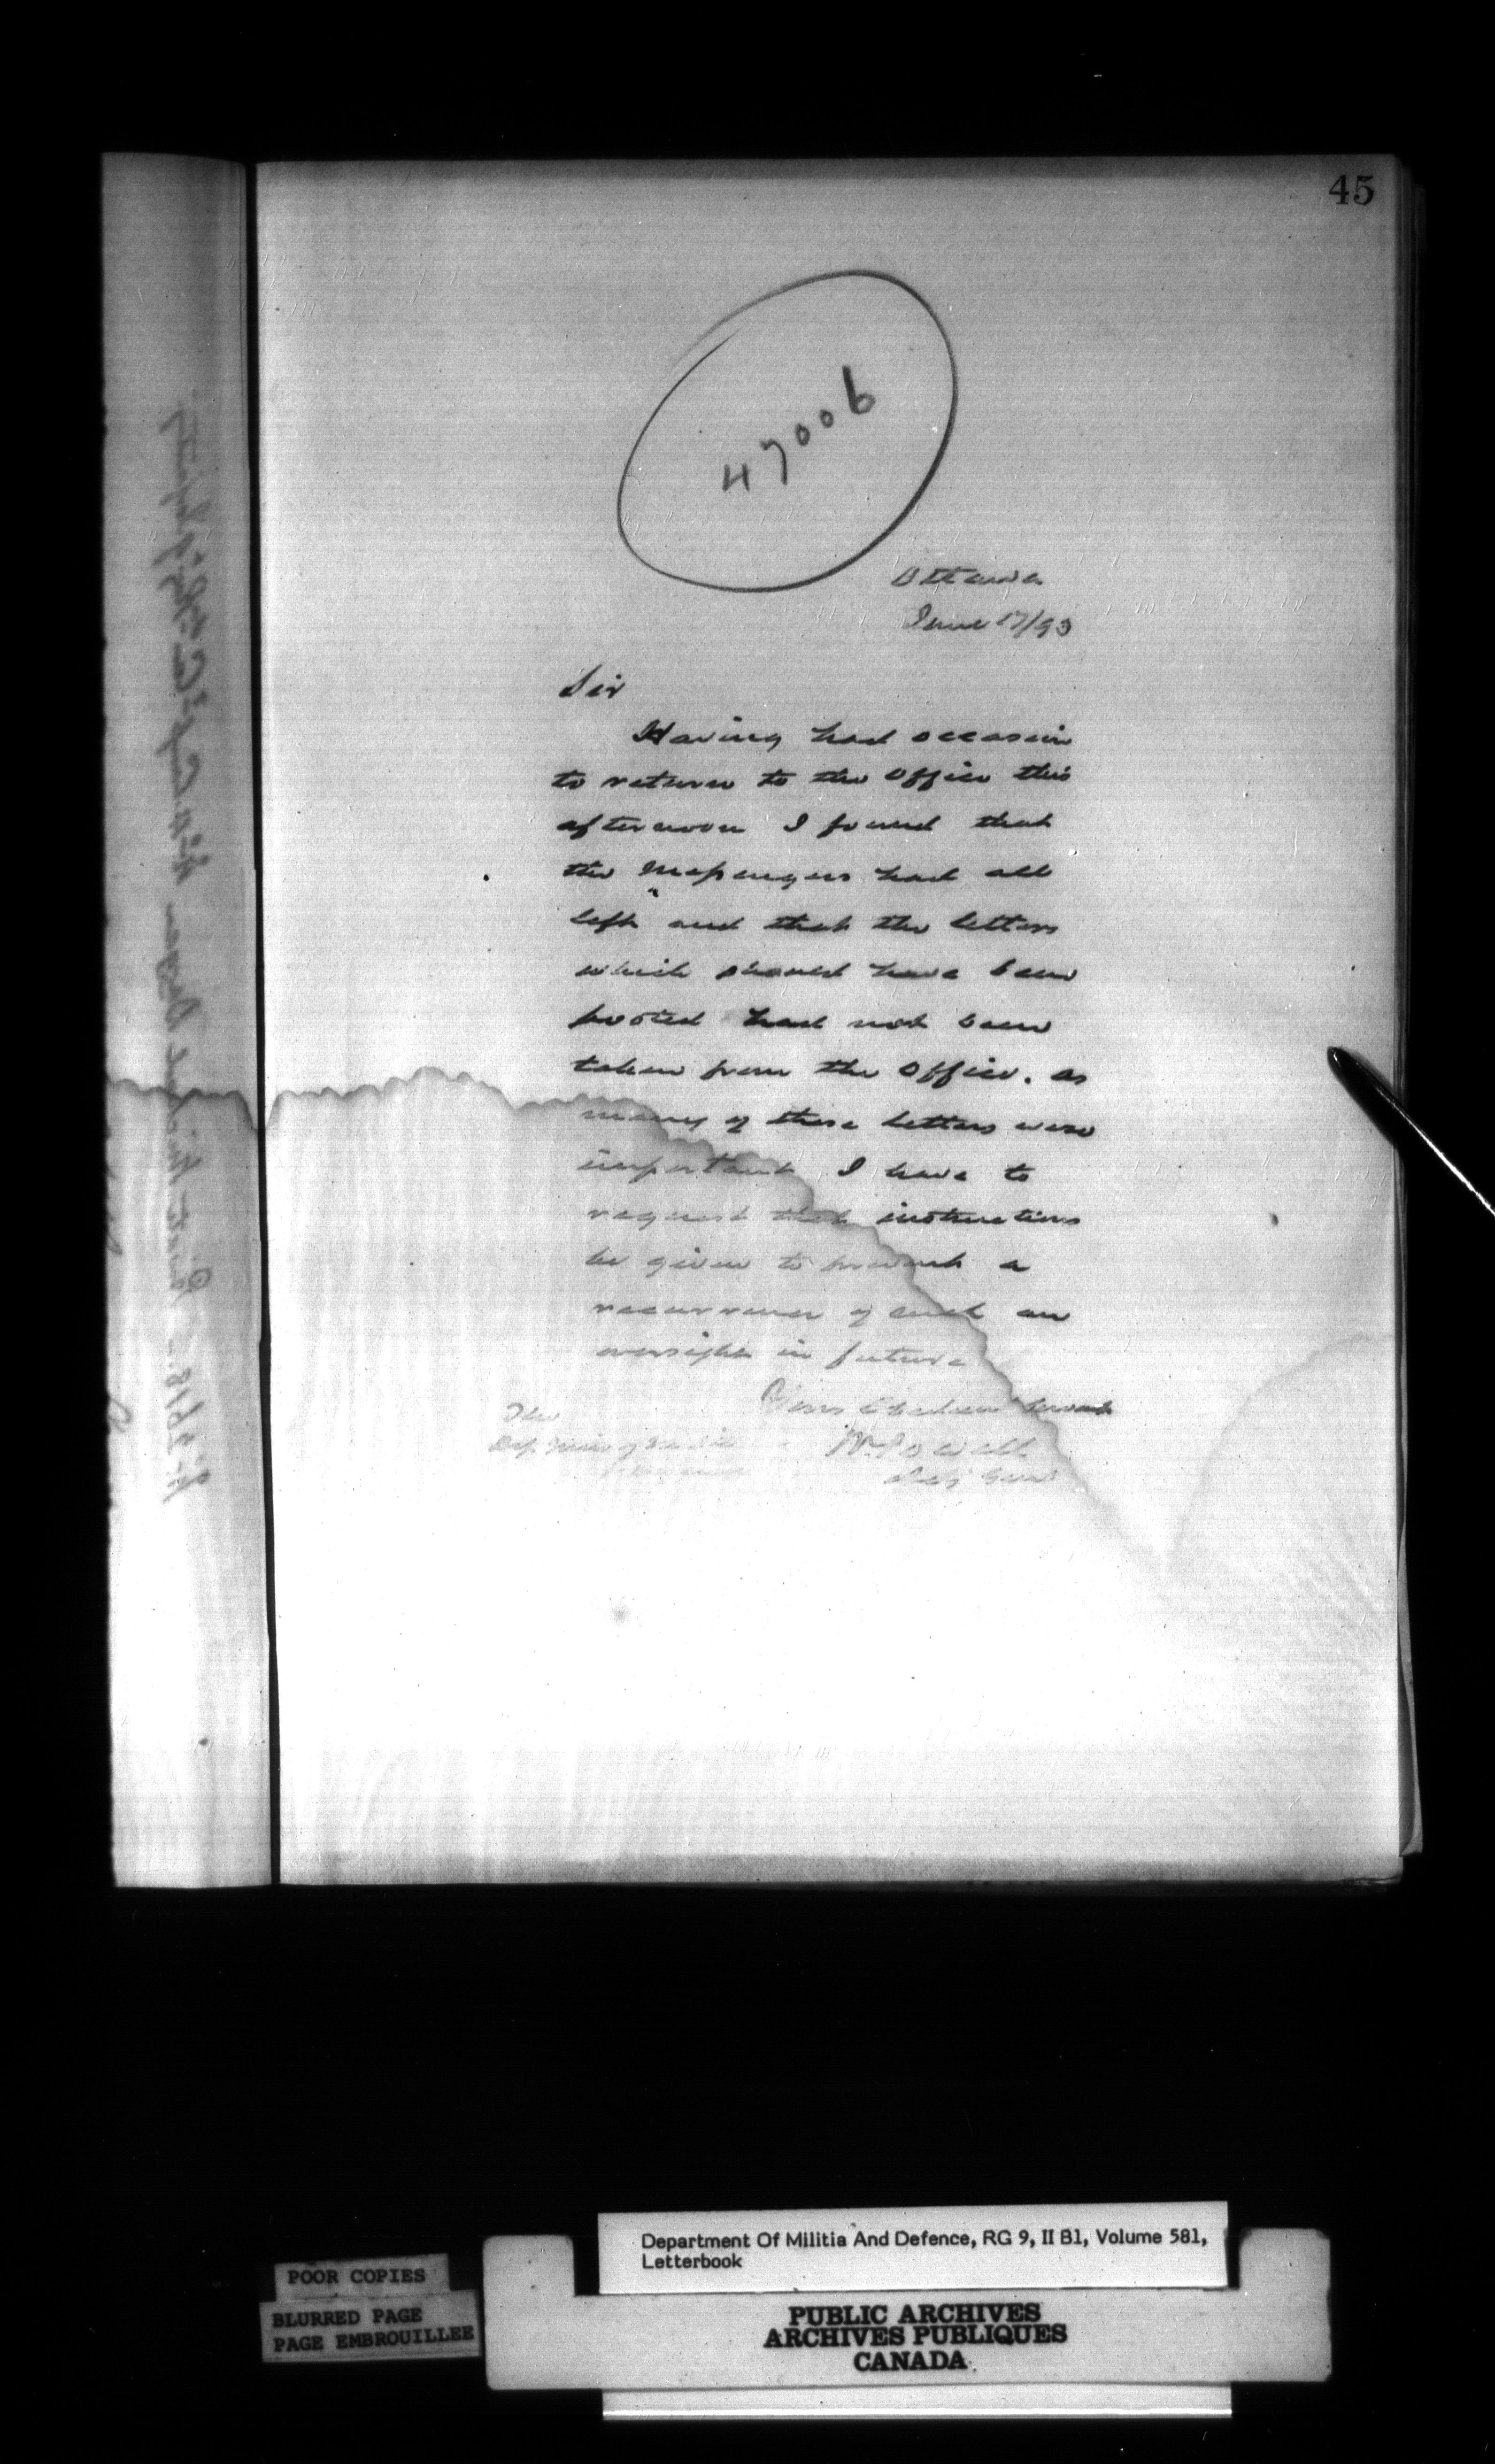 45
47006
Ottawa
June 17/93
Sir
Having had occasion
to return to the Office this
afternoon I found that
the Messengers had all
left and that the letters
which should have been
posted had not been
taken from the Office. as
many of these letters were
important I have to
request that instructions
be given to prevent a
recurrence of such an
oversight in future
Your Obedient Servant
The
W. Powell
Dep. Min of Militia
Adj Genl
Department Of Militia And Defence, RG 9, II B1, Volume 581,
Letterbook
POOR COPIES
BLURRED PAGE
PAGE EMBROUILLEE
PUBLIC ARCHIVES
ARCHIVES PUBLIQUES
CANADA